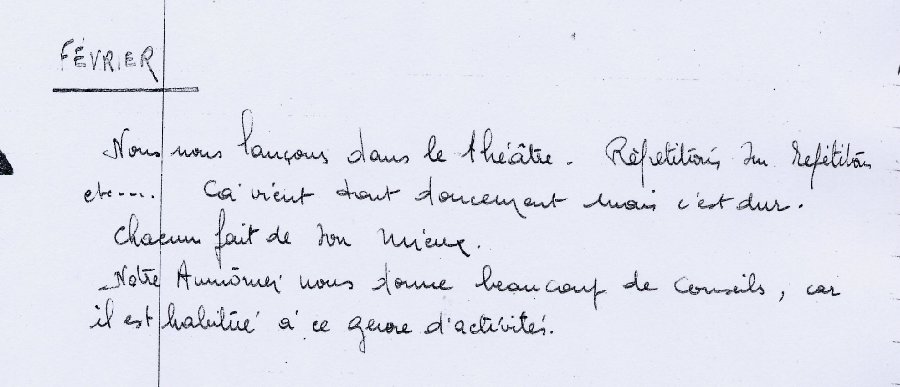 FÉVRIER
Nous nous lançons dans le théâtre. Répétitions sur répétitions
etc..... Ca vient tout doucement mais c'est dur.
Chacun fait de son mieux.
Notre Aumônier nous donne beaucoup de conseils, car
il est habitué à ce genre d'activités.